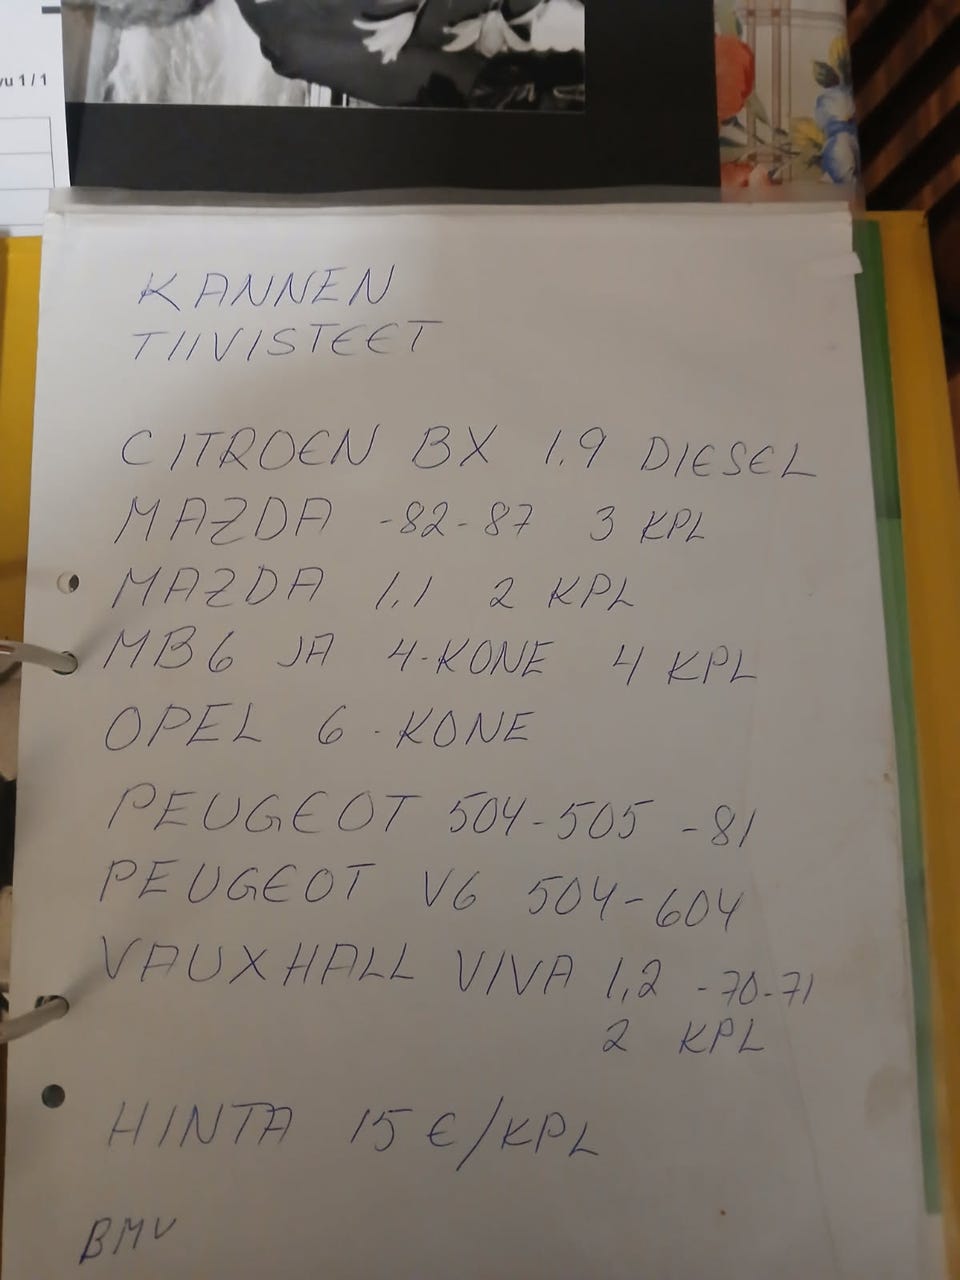 vu 1 / 1
KANNEN
TIIVISTEET
CITROEN BX 1.9 DIESEL
MAZDA -82-87 3 KPL
MAZDA 1.1 2 KPL
MB6 JA 4-KONE 4 KPL
OPEL 6-KONE
PEUGEOT 504-505 -81
PEUGEOT V6 504-604
VAUXHALL VIVA 1,2 -70-71
2 KPL
HINTA 15 €/KPL
BMV